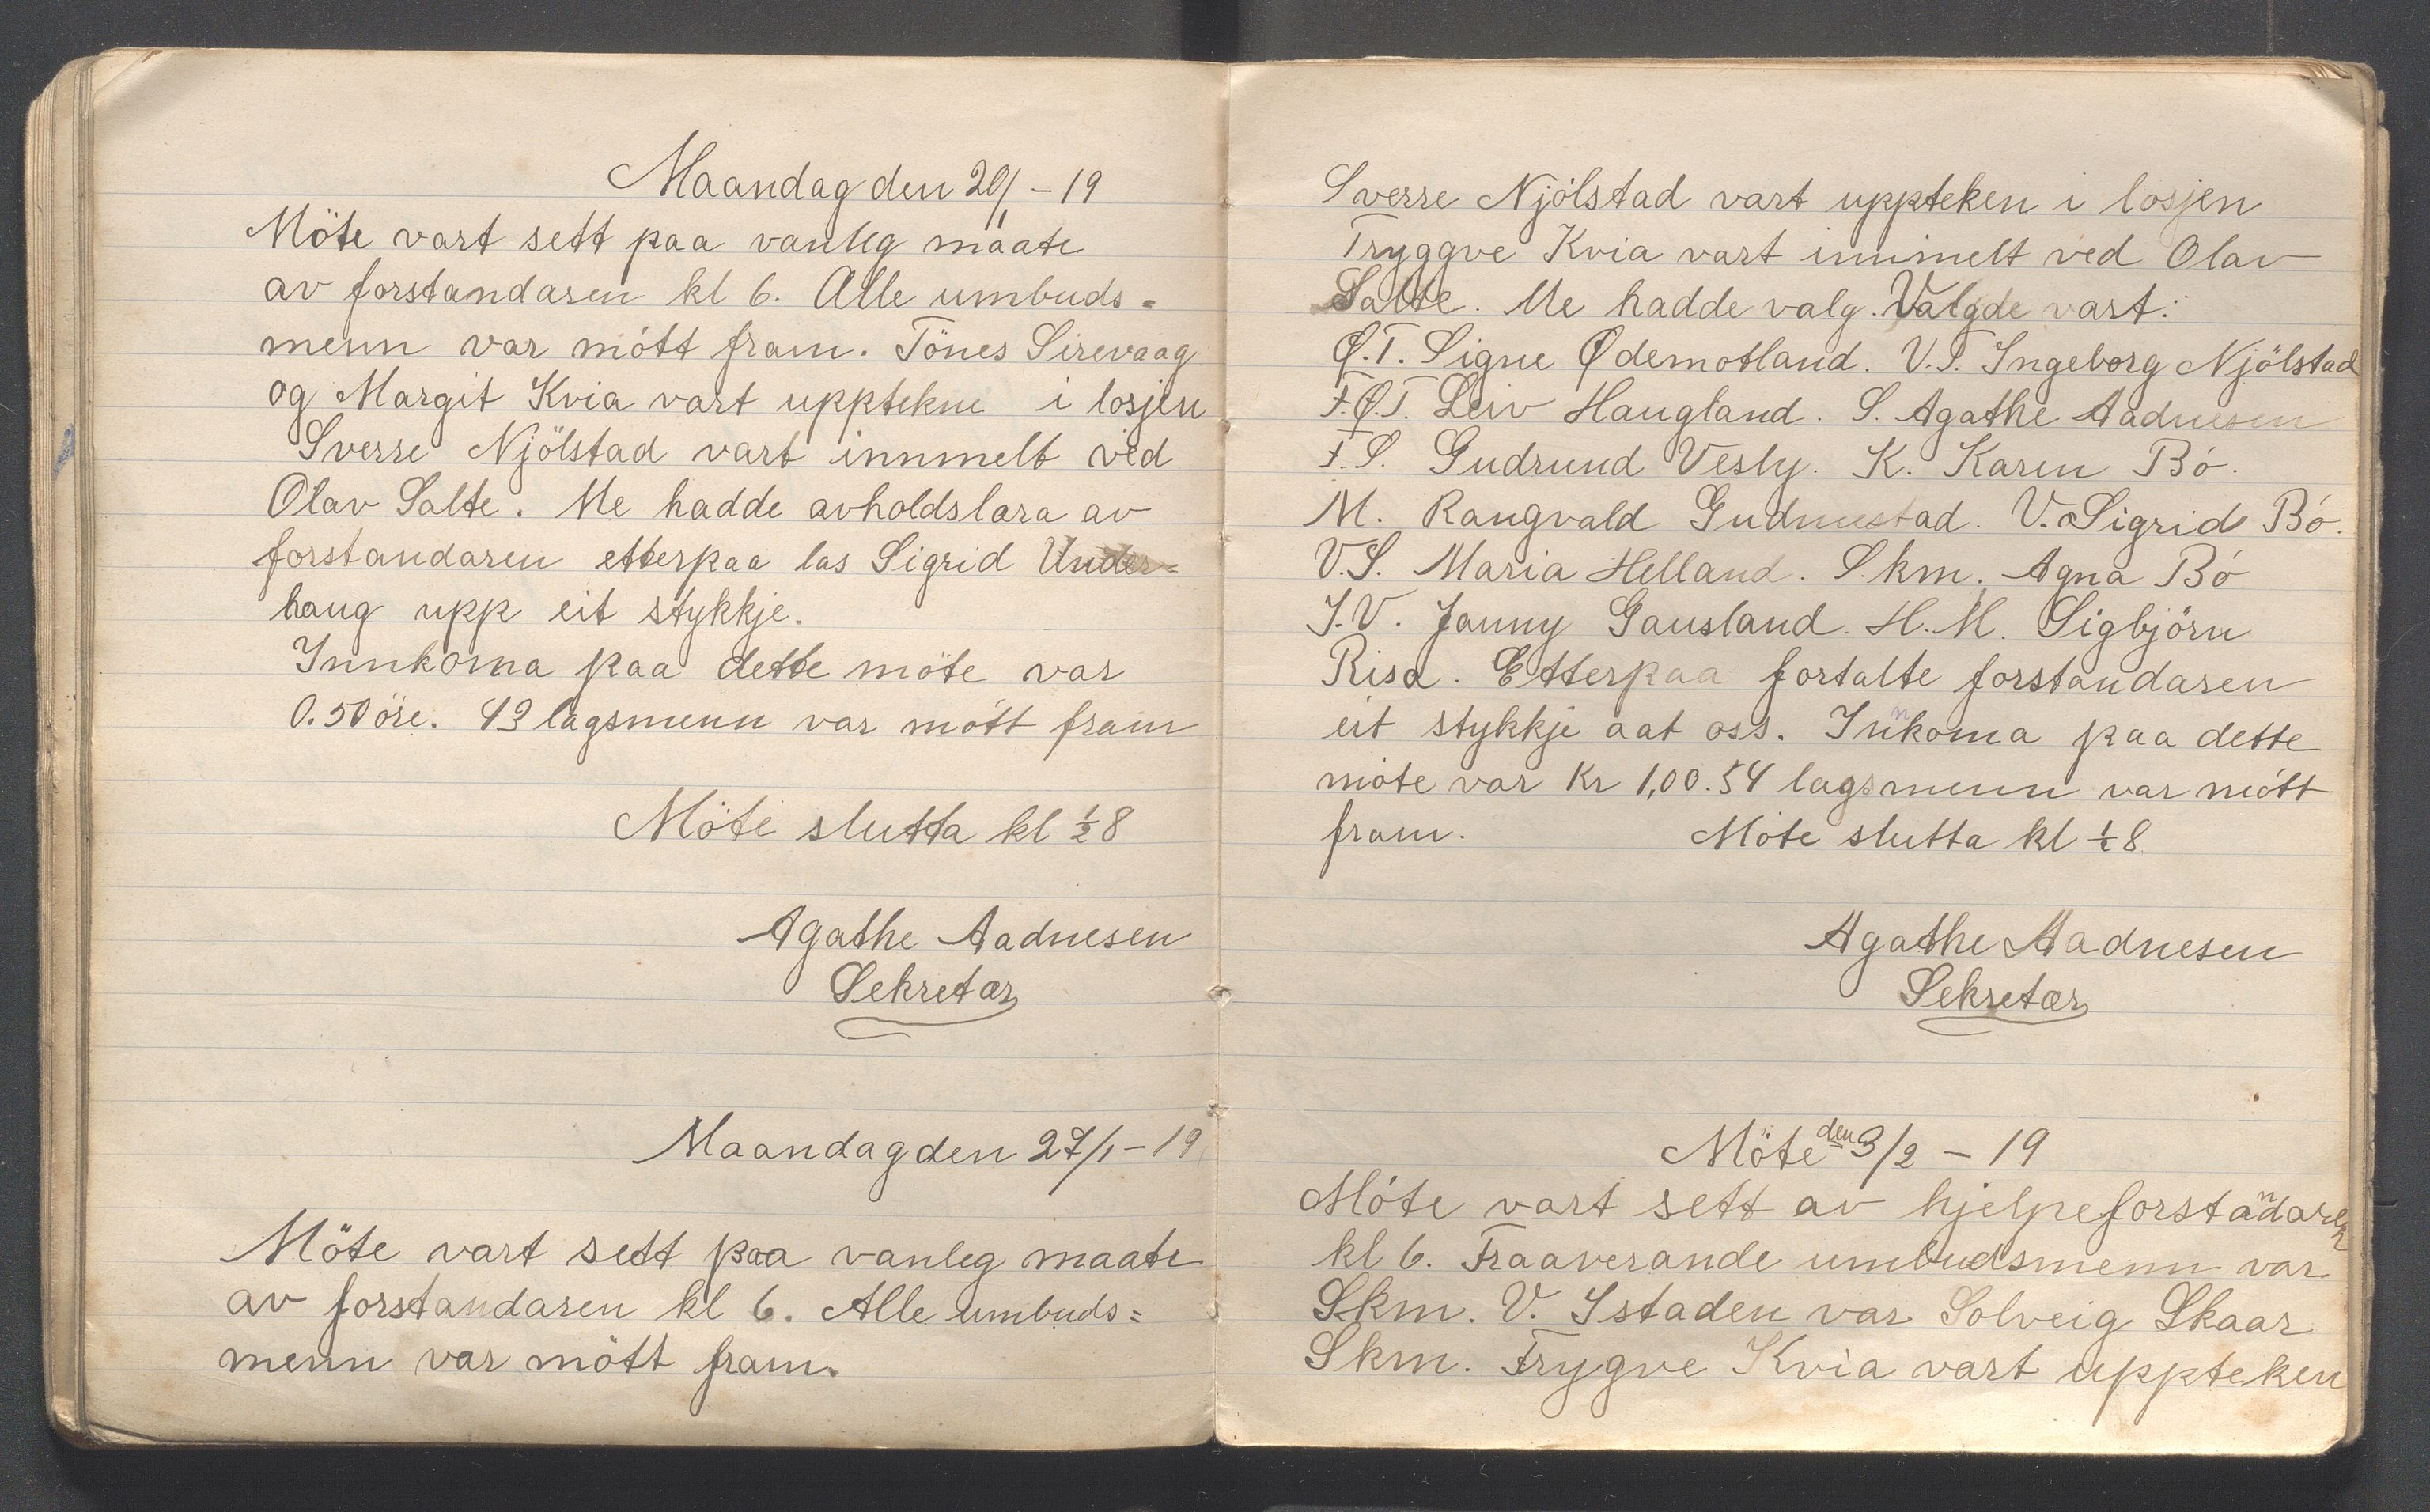 Maandag den 20/1 - 19
Möte vart sett paa vanleg maate
av forstandaren kl 6. Alle umbuds=
menn var mött fram. Tönes Sirevaag
og Margit Kvia vart upptekne i losjen
Sverre Njölstad vart innmelt ved
Olav Salte. Me hadde avholdslæra av
forstandaren etterpaa las Sigrid Under=
haug upp eit stykkje.
Innkoma paa dette möte var
0.50 öre. 43 lagsmenn var mött fram
Möte slutta kl ½ 8
Agathe Aadnesen
Sekretær
Maandag den 27/1 - 19
Möte vart sett paa vanleg maate
av forstandaren kl 6. Alle umbuds=
menn var mött fram.
Sverre Njölstad vart uppteken i losjen
Tryggve Kvia vart innmelt ved Olav
Salte. Me hadde valg. Valgde vart:
Ø.T. Signe Ødemotland. V.T. Ingeborg Njölstad
F.Ø.T. Leiv Haugland. S. Agathe Aadnesen
F.S. Gudrund Vesly. K. Karen Bö.
M. Rangvald Gudmestad. V. Sigrid Bö.
V.S. Maria Helland. S.km. Agna Bö
I.V. Janny Gausland. H.M. Sigbjörn
Risa. Etterpaa fortalte forstandaren
eit stykkje aat oss. Innkoma paa dette
möte var Kr 1,00. 54 lagsmenn var mött
fram. Möte slutta kl ½ 8
Agathe Aadnesen
Sekretær
Möte den 3/2 - 19
Möte vart sett av hjelpeforstandaren
kl 6. Fraaverande umbudsmenn var
Skm. V. Istaden var Solveig Skaar
Skm. Trygve Kvia vart uppteken